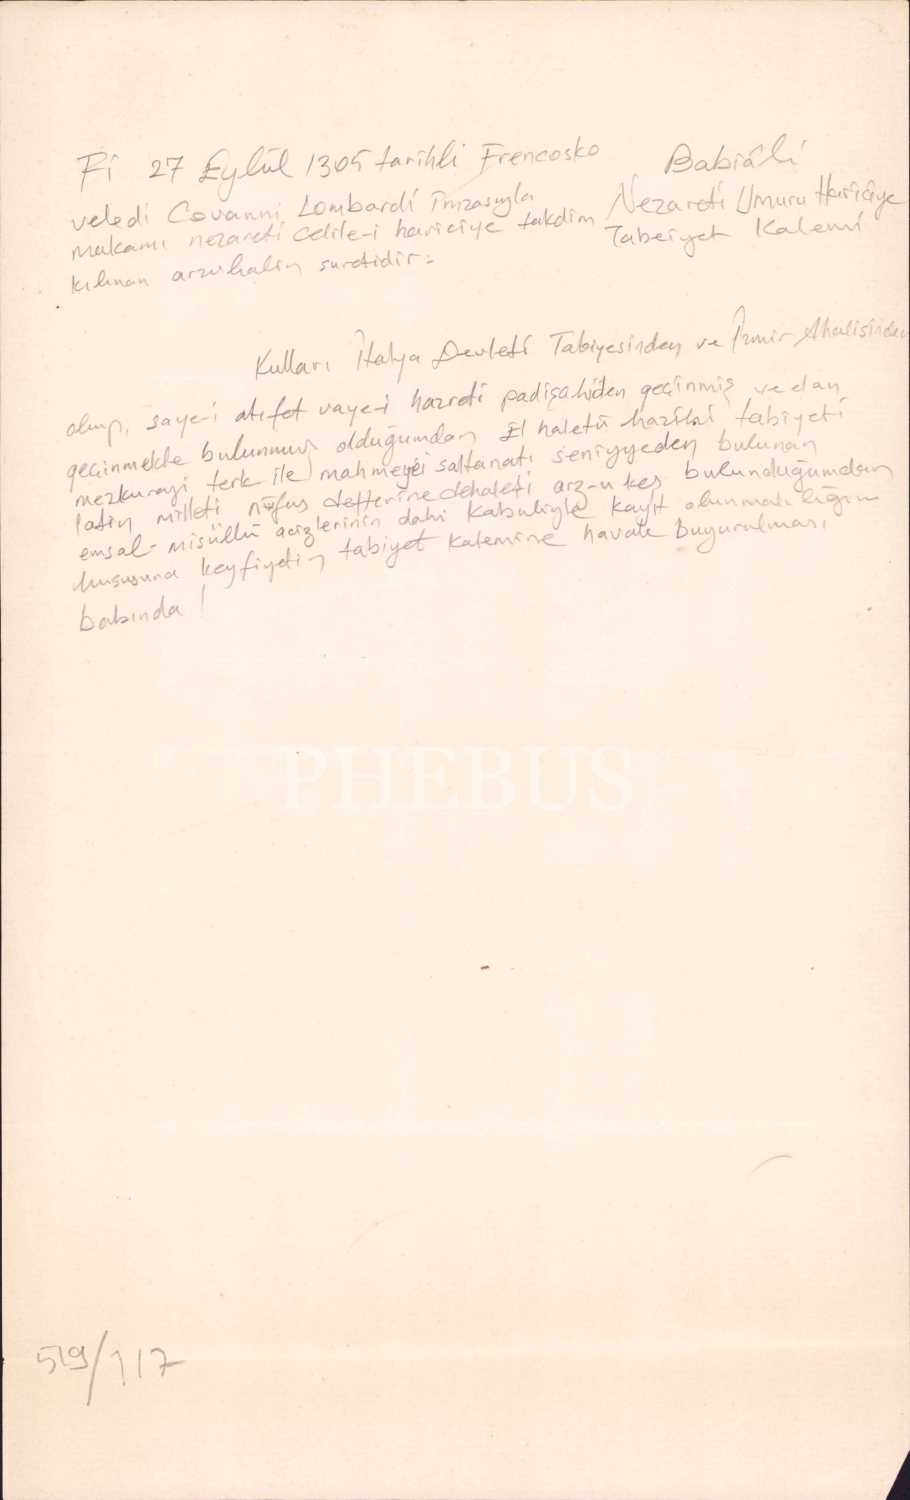 Fi 27 Eylül 1305 tarihli Frencosko
veledi Covanni Lombardi imzasıyla
makamı nezareti celile-i hariciye takdim
kılınan arzuhalin suretidir:
Babıâli
Nezareti Umuru Hariciye
Tabeiyet Kalemi
Kulları İtalya Devleti Tabiyesinden ve İzmir Ahalisinden
olup, saye-i atıfet vaye-i hazreti padişahiden geçinmiş ve elan
geçinmekte bulunmuş olduğumdan El haletü hazihi tabiyeti
mezkureyi terk ile mahmeyei saltanatı seniyyeden bulunan
latin milleti nüfus defterine dehaleti arz-u keş bulunduğumdan
emsal-misüllü acizlerinin dahi kabuliyle kayıt olunmaklığım
hususuna keyfiyetin tabiyet kalemine havale buyurulması
babında!
PHEBUS
519/117